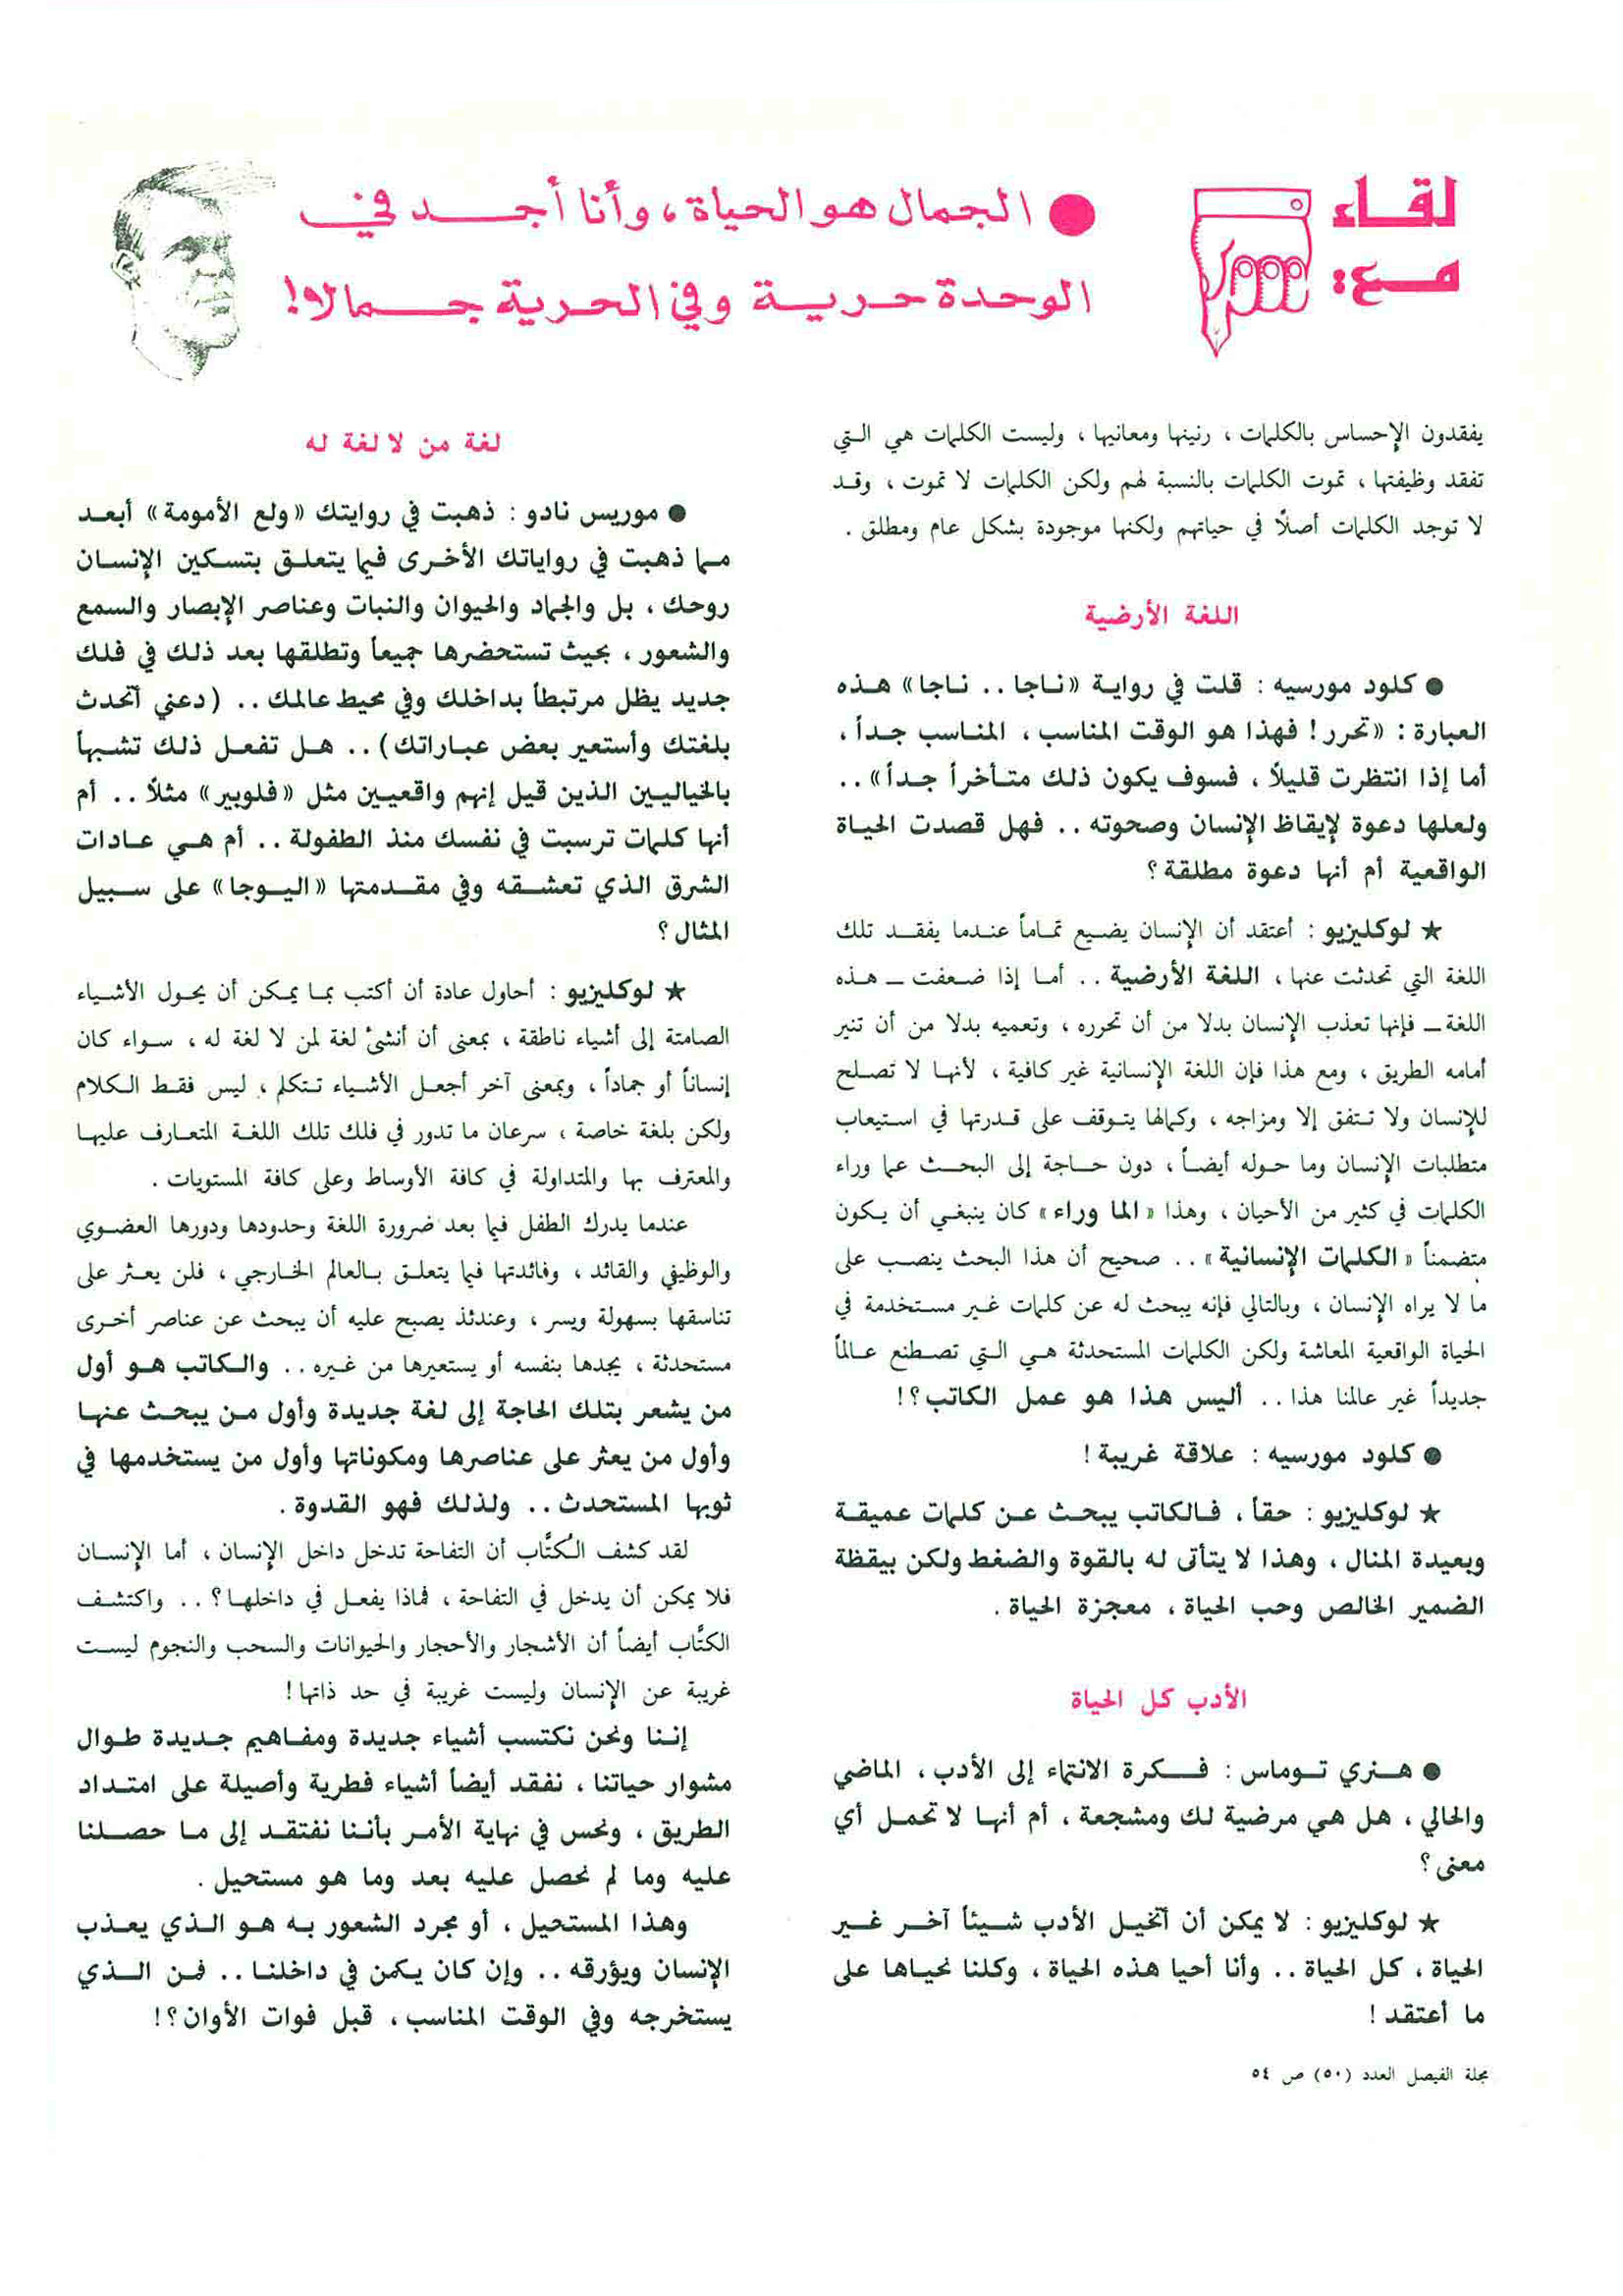 لقاء
مع:
● الجمال هو الحياة، وأنا أجد في
الوحدة حرية وفي الحرية جمالا!
يفقدون الإحساس بالكلمات، رنينها ومعانيها، وليست الكلمات هي التي
تفقد وظيفتها، تموت الكلمات بالنسبة لهم ولكن الكلمات لا تموت، وقد
لا توجد الكلمات أصلًا في حياتهم ولكنها موجودة بشكل عام ومطلق.
اللغة الأرضية
● كلود مورسيه: قلت في رواية «ناجا.. ناجا» هذه
العبارة: «تحرر! فهذا هو الوقت المناسب، المناسب جداً،
أما إذا انتظرت قليلًا، فسوف يكون ذلك متأخراً جداً»..
ولعلها دعوة لإيقاظ الإنسان وصحوته.. فهل قصدت الحياة
الواقعية أم أنها دعوة مطلقة؟
★ لوكليزيو: أعتقد أن الإنسان يضيع تماماً عندما يفقد تلك
اللغة التي تحدثت عنها، اللغة الأرضية.. أما إذا ضعفت ـ هذه
اللغة ـ فإنها تعذب الإنسان بدلا من أن تحرره، وتعميه بدلا من أن تنير
أمامه الطريق، ومع هذا فإن اللغة الإنسانية غير كافية، لأنها لا تصلح
للإنسان ولا تتفق إلا ومزاجه، وكمالها يتوقف على قدرتها في استيعاب
متطلبات الإنسان وما حوله أيضاً، دون حاجة إلى البحث عما وراء
الكلمات في كثير من الأحيان، وهذا «الما وراء» كان ينبغي أن يكون
متضمناً «الكلمات الإنسانية».. صحيح أن هذا البحث ينصب على
ما لا يراه الإنسان، وبالتالي فإنه يبحث له عن كلمات غير مستخدمة في
الحياة الواقعية المعاشة ولكن الكلمات المستحدثة هي التي تصطنع عالماً
جديداً غير عالمنا هذا.. أليس هذا هو عمل الكاتب؟!
● كلود مورسيه: علاقة غريبة!
★ لوكليزيو: حقاً، فالكاتب يبحث عن كلمات عميقة
وبعيدة المنال، وهذا لا يتأتى له بالقوة والضغط ولكن بيقظة
الضمير الخالص وحب الحياة، معجزة الحياة.
الأدب كل الحياة
● هنري توماس: فكرة الانتماء إلى الأدب، الماضي
والحالي، هل هي مرضية لك ومشجعة، أم أنها لا تحمل أي
معنى؟
★ لوكليزيو: لا يمكن أن أتخيل الأدب شيئاً آخر غير
الحياة، كل الحياة.. وأنا أحيا هذه الحياة، وكلنا نحياها على
ما أعتقد!
لغة من لا لغة له
● موريس نادو: ذهبت في روايتك «ولع الأمومة» أبعد
مما ذهبت في رواياتك الأخرى فيما يتعلق بتسكين الإنسان
روحك، بل والجماد والحيوان والنبات وعناصر الإبصار والسمع
والشعور، بحيث تستحضرها جميعاً وتطلقها بعد ذلك في فلك
جديد يظل مرتبطاً بداخلك وفي محيط عالمك.. (دعني أتحدث
بلغتك وأستعير بعض عباراتك).. هل تفعل ذلك تشبهاً
بالخياليين الذين قيل إنهم واقعيين مثل «فلوبير» مثلًا.. أم
أنها كلمات ترسبت في نفسك منذ الطفولة.. أم هي عادات
الشرق الذي تعشقه وفي مقدمتها «اليوجا» على سبيل
المثال؟
★ لوكليزيو: أحاول عادة أن أكتب بما يمكن أن يحول الأشياء
الصامتة إلى أشياء ناطقة، بمعنى أن أنشئ لغة لمن لا لغة له، سواء كان
إنساناً أو جماداً، وبمعنى آخر أجعل الأشياء تتكلم، ليس فقط الكلام
ولكن بلغة خاصة، سرعان ما تدور في فلك تلك اللغة المتعارف عليها
والمعترف بها والمتداولة في كافة الأوساط وعلى كافة المستويات.
عندما يدرك الطفل فيما بعد ضرورة اللغة وحدودها ودورها العضوي
والوظيفي والقائد، وفائدتها فيما يتعلق بالعالم الخارجي، فلن يعثر على
تناسقها بسهولة ويسر، وعندئذ يصبح عليه أن يبحث عن عناصر أخرى
مستحدثة، يجدها بنفسه أو يستعيرها من غيره.. والكاتب هو أول
من يشعر بتلك الحاجة إلى لغة جديدة وأول من يبحث عنها
وأول من يعثر على عناصرها ومكوناتها وأول من يستخدمها في
ثوبها المستحدث.. ولذلك فهو القدوة.
لقد كشف الكتَّاب أن التفاحة تدخل داخل الإنسان، أما الإنسان
فلا يمكن أن يدخل في التفاحة، فماذا يفعل في داخلها؟.. واكتشف
الكتَّاب أيضاً أن الأشجار والأحجار والحيوانات والسحب والنجوم ليست
غريبة عن الإنسان وليست غريبة في حد ذاتها!
إننا ونحن نكتسب أشياء جديدة ومفاهيم جديدة طوال
مشوار حياتنا، نفقد أيضاً أشياء فطرية وأصيلة على امتداد
الطريق، ونحس في نهاية الأمر بأننا نفتقد إلى ما حصلنا
عليه وما لم نحصل عليه بعد وما هو مستحيل.
وهذا المستحيل، أو مجرد الشعور به هو الذي يعذب
الإنسان ويؤرقه.. وإن كان يكمن في داخلنا.. فمن الذي
يستخرجه وفي الوقت المناسب، قبل فوات الأوان؟!
مجلة الفيصل العدد (٥٠) ص ٥٤